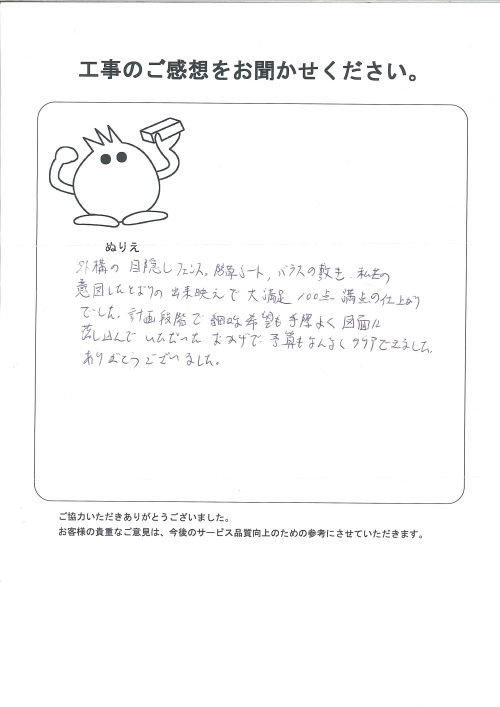 工事のご感想をお聞かせください。
ぬりえ
外構の 目隠しフェンス。防草シート, バラスの敷き、私共の
意図したとおりの 出来映えで 大満足 100点 満点の仕上がり
でした。計画段階で 細かな希望も 手際よく 図面に
落し込んで いただいた おかげで 予算もなんなくクリアできました。
ありがとうございました。
ご協力いただきありがとうございました。
お客様の貴重なご意見は、今後のサービス品質向上のための参考にさせていただきます。